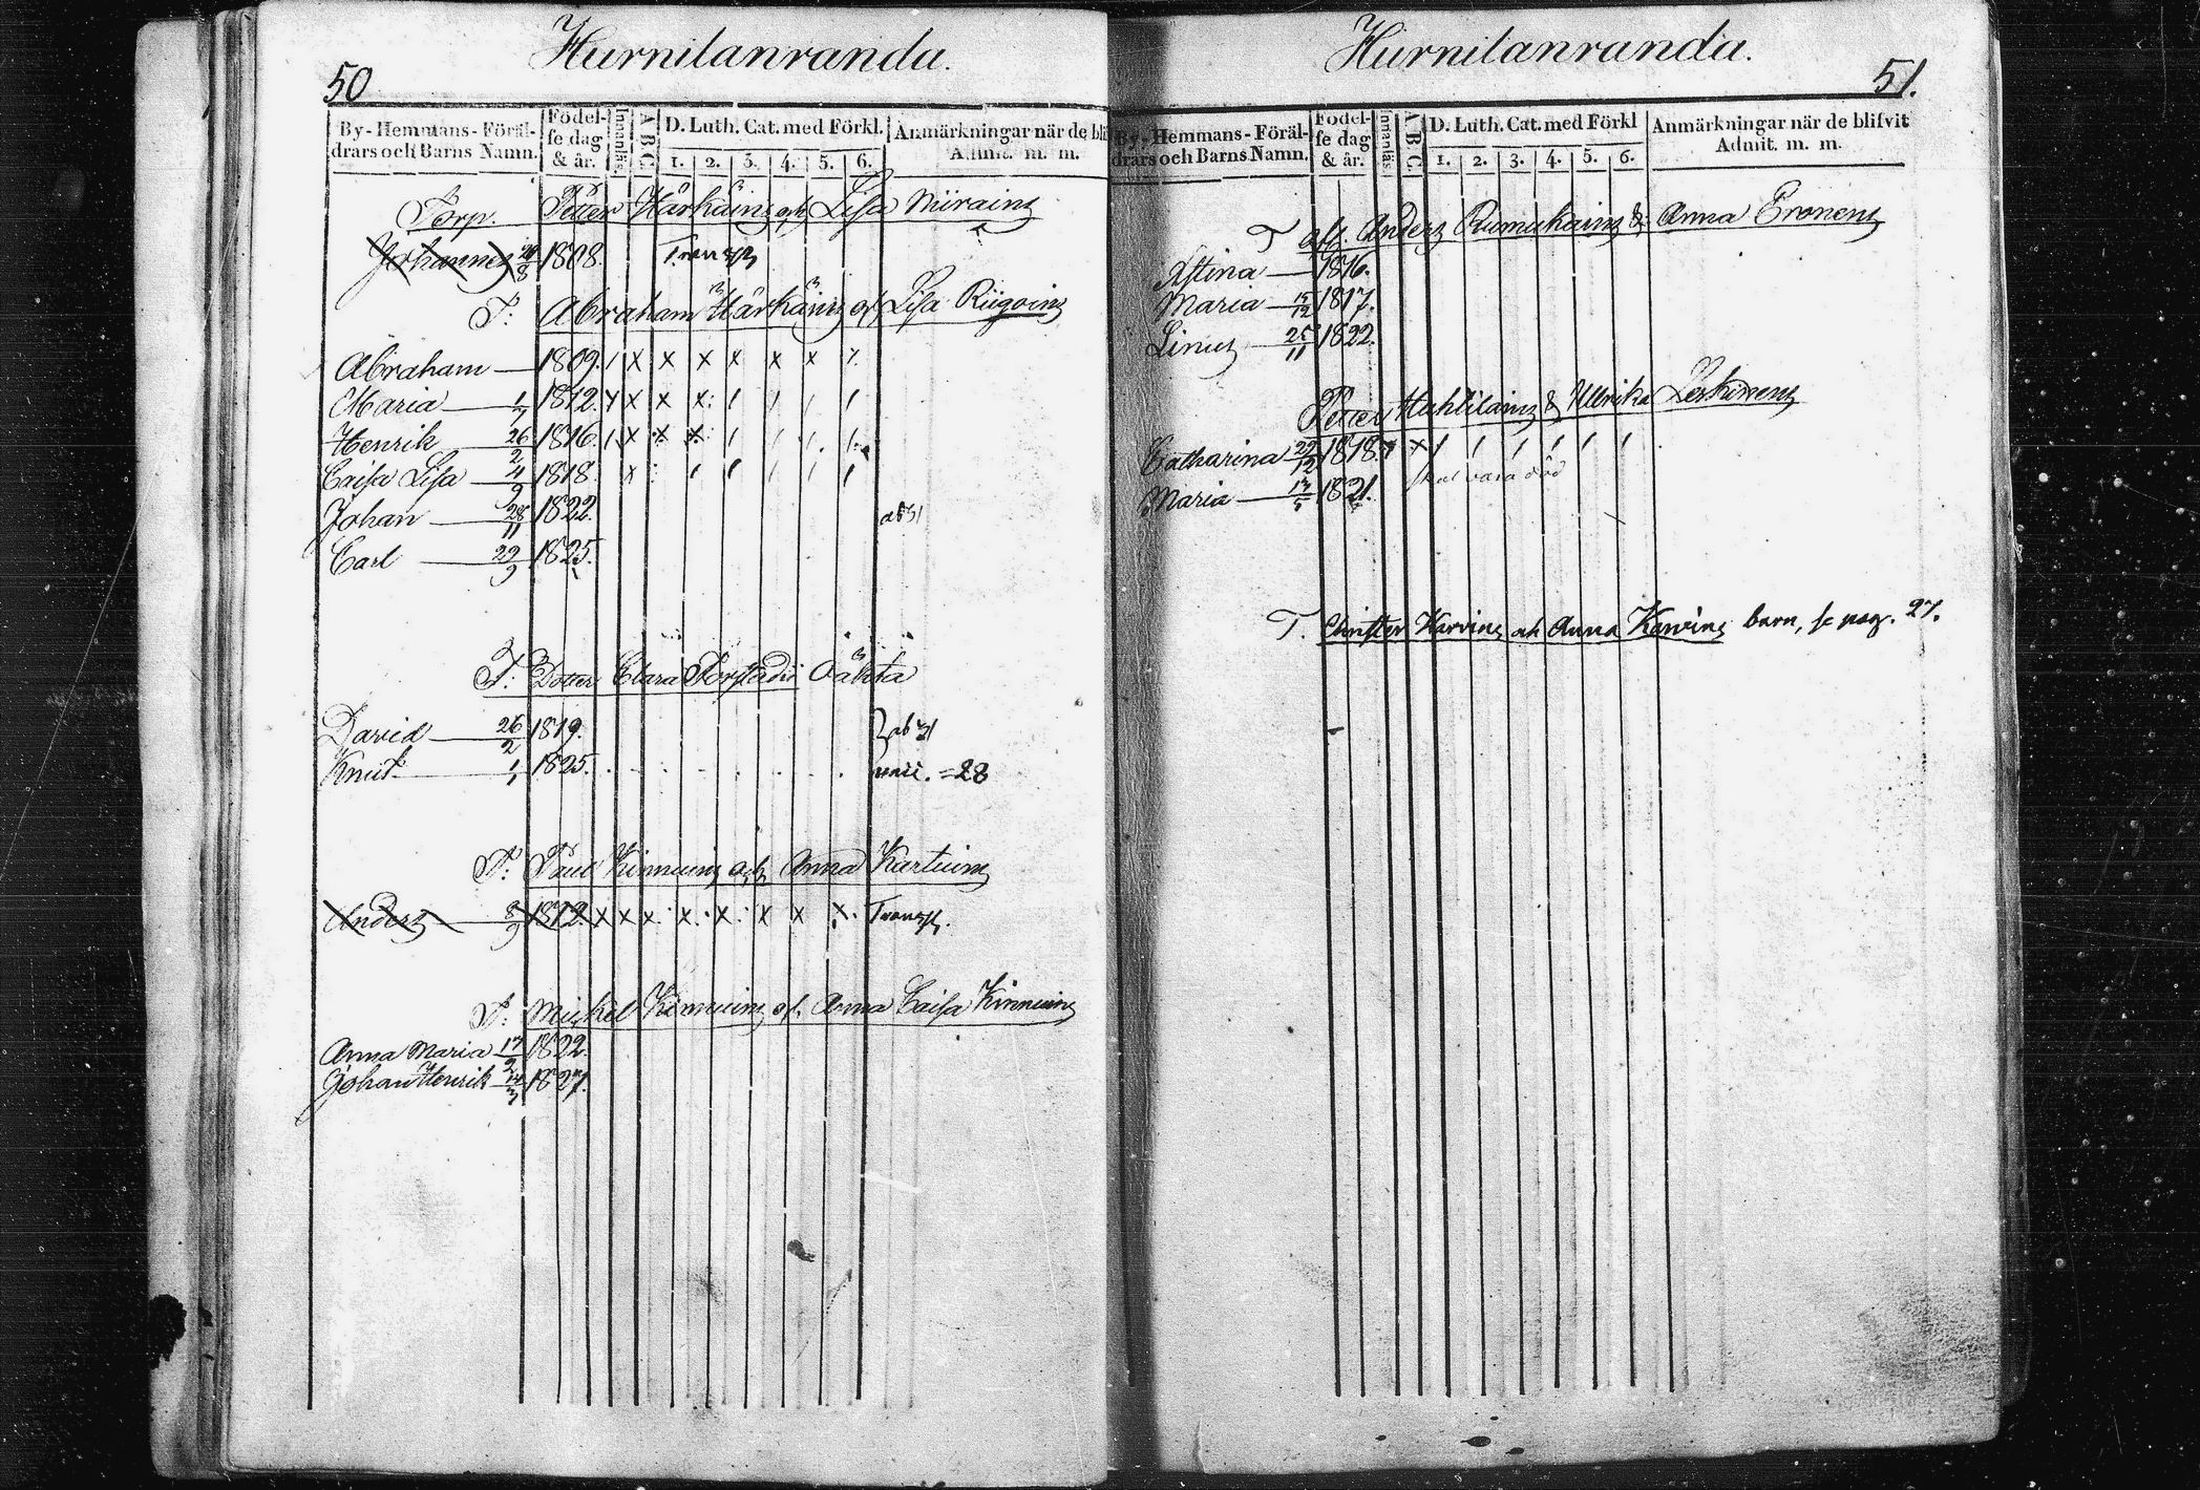 Hurnilanranda.
50
By-Hemmans-Föräl-
drars och Barns Namn.
Födel-
se dag
& år.
Innanläs
A B C.
D. Luth. Cat. med Förkl.
1. 2. 3. 4. 5. 6.
Anmärkningar när de bli
Admit. m. m.
Torp. Petter Härkäin och Lisa
Johannes 1808. Transp
T: Abraham Härkäin o. Lisa
Abraham — 1809. / x x x x x x x
Maria — 1/7 1812. x x x x: / / / /
Henrik — 26/2 1816. / x x x: / / / /
Caisa Lisa — 4/9 1818. x : / / / / /
Johan — 28/11 1822.
Carl — 29/9 1825.
T: Dotter Clara
David — 26/2 1819.
Knut — 1/1 1825. = 28
T: Paul Kinnuin och Anna
Anders — 8/9 1812. x x x x x x x x Transp.
T: Michel Kinnuin o. Anna Caisa Kinnuin
Anna Maria 17/2 1822.
Johan Henrik 1827.
Hurnilanranda.
51.
By-Hemmans-Föräl-
drars och Barns Namn.
Födel-
se dag
& år.
Innanläs
A B C.
D. Luth. Cat. med Förkl
1. 2. 3. 4. 5. 6.
Anmärkningar när de blifvit
Admit. m. m.
T Anders & Anna Eronen
Maria — 15/12 1817.
Linus — 25/11 1822.
Petter & Ullrika
Catharina 29/12 1818. x x / / / / / /
Maria — 13/5 1821. skal vara död
T. Christer Karvin och Anna Karvin barn, se pag. 27.